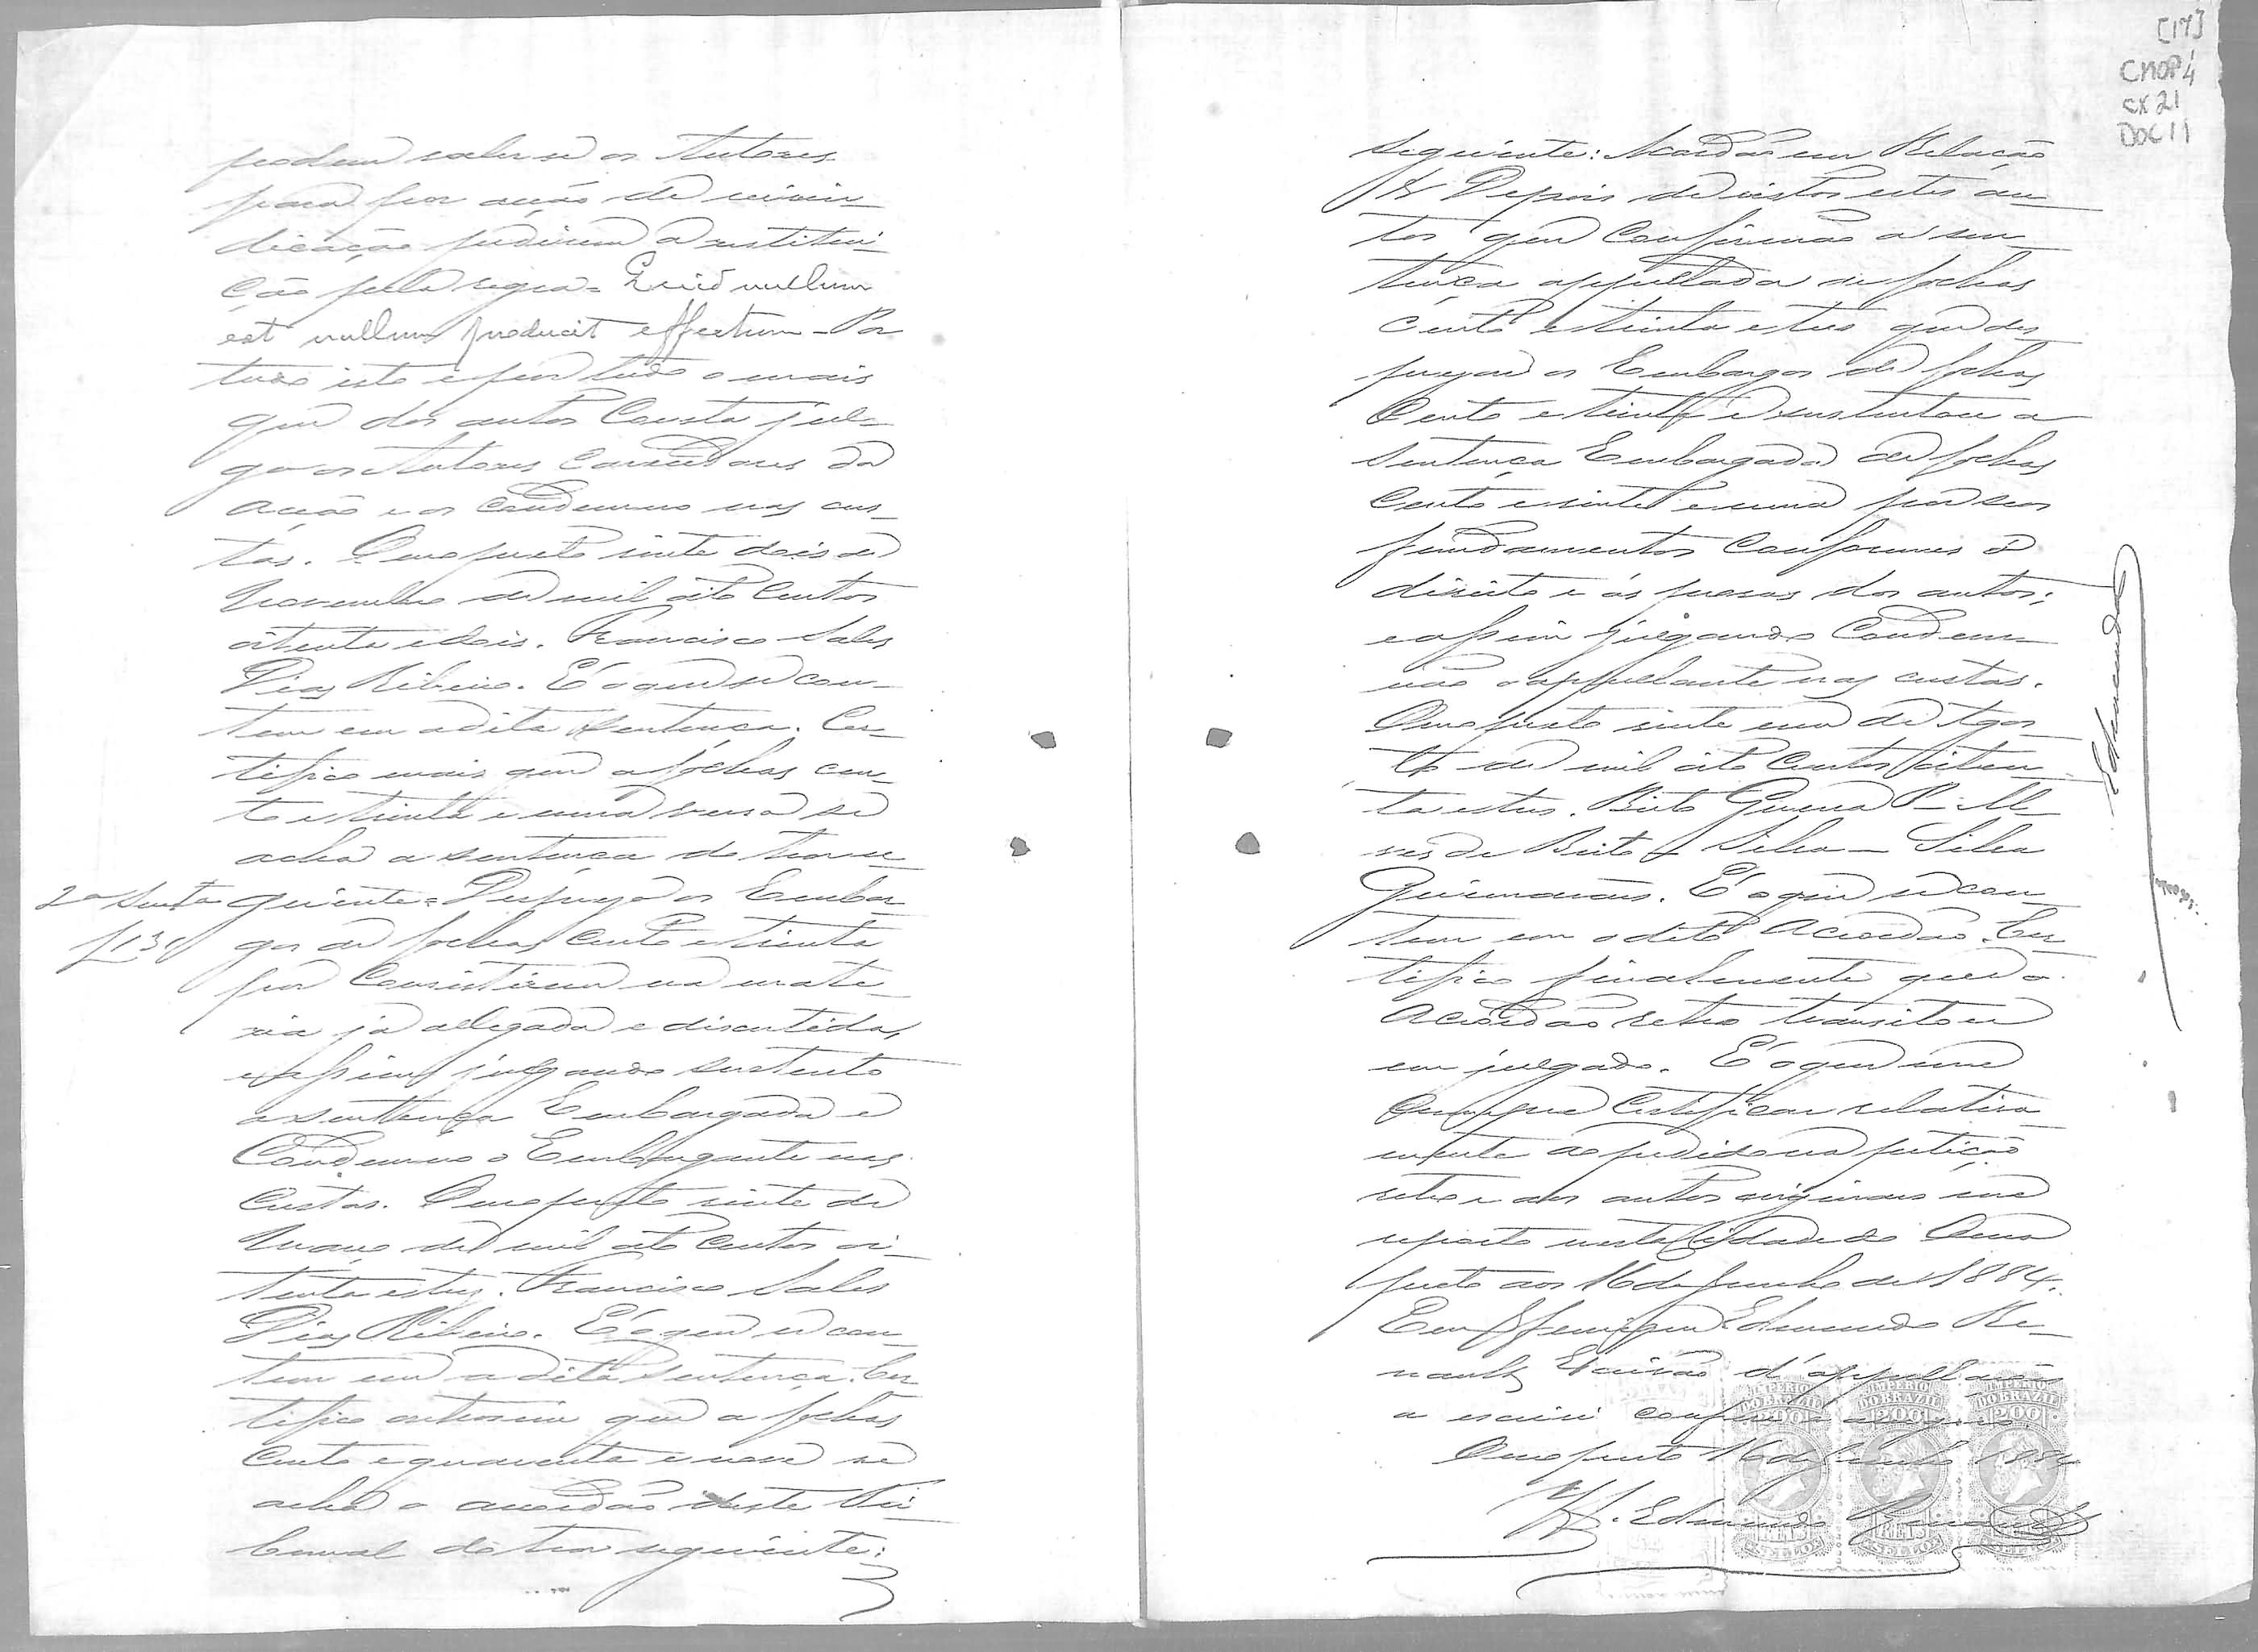 podem valer se os Autores
para por acção de reivin-
dicação pedirem a restitui-
ção pela regra = Quid nullum
est nullum producit effectum - Por
tudo isto e por tudo o mais
que dos autos Consta jul-
go os Autores Carecedores da
acção e os Condemno nas cus-
tas. Ouro preto vinte dois de
Novembro de mil oito Centos
oitenta e dois. Francisco Sales
Dias Ribeiro. É o que se con-
tem em a dita Sentença. Cer-
tifico mais que a folhas cen-
to e trinta e uma verso se
acha a sentença do theor se
2ª Sentª
guinte = Desprezo os Embar
gos de folhas Cento e trinta
por Consistirem na mate-
ria já allegada e discutida,
e assim julgando sustento
a sentença Embargada e
Condemno o Embargante nas
Custas. Ouro preto vinte de
Março de mil oito Centos oi-
tenta e tres. Francisco Sales
Dias Ribeiro. É o que se con-
tem em a dita Sentença. Cer
tifico outrosim que a folhas
Cento e quarenta e nove se
acha o accordão deste Tri-
bunal do theor seguinte:
[17]
CMOP 4
CX 21
DOC 11
seguinte: Accordão em Relação
& Depois de vistos estes au-
tos que Confirmão a sen-
tença appellada de folhas
Cento e trinta e tres que des
prezou os Embargos de folhas
Cento e trinta e sustentou a
Sentença Embargada de folhas
Cento e vinte e uma por seus
fundamentos Conformes a
direito e ás provas dos autos;
e assim julgando Condem-
não o appellante nas custas.
Ouro preto vinte um de Agos-
to de mil oito Centos oiten
ta e tres. Brito Guerra P - Al
ves de Brito - Silva - Silva
Guimarães. É o que se con-
tem em o dito Accordão. Cer
tifico finalmente que o
Accordão retro transitou
em julgado. É o que me
Cumpre Certificar relativa-
mente ao pedido na petição
retro e aos autos originaes me
reporto nesta Cidade do Ouro
preto aos 16 de Junho de 1884.
Eu Henrique Edmundo Re-
nault, Escrivão d'appellações
a escrevi conferi e assigno
Ouro preto 16 de Junho 1884
H. Edmundo Renault
Edmundo
IMPERIO DO BRAZIL 200 REIS SELLO
IMPERIO DO BRAZIL 200 REIS SELLO
IMPERIO DO BRAZIL 200 REIS SELLO